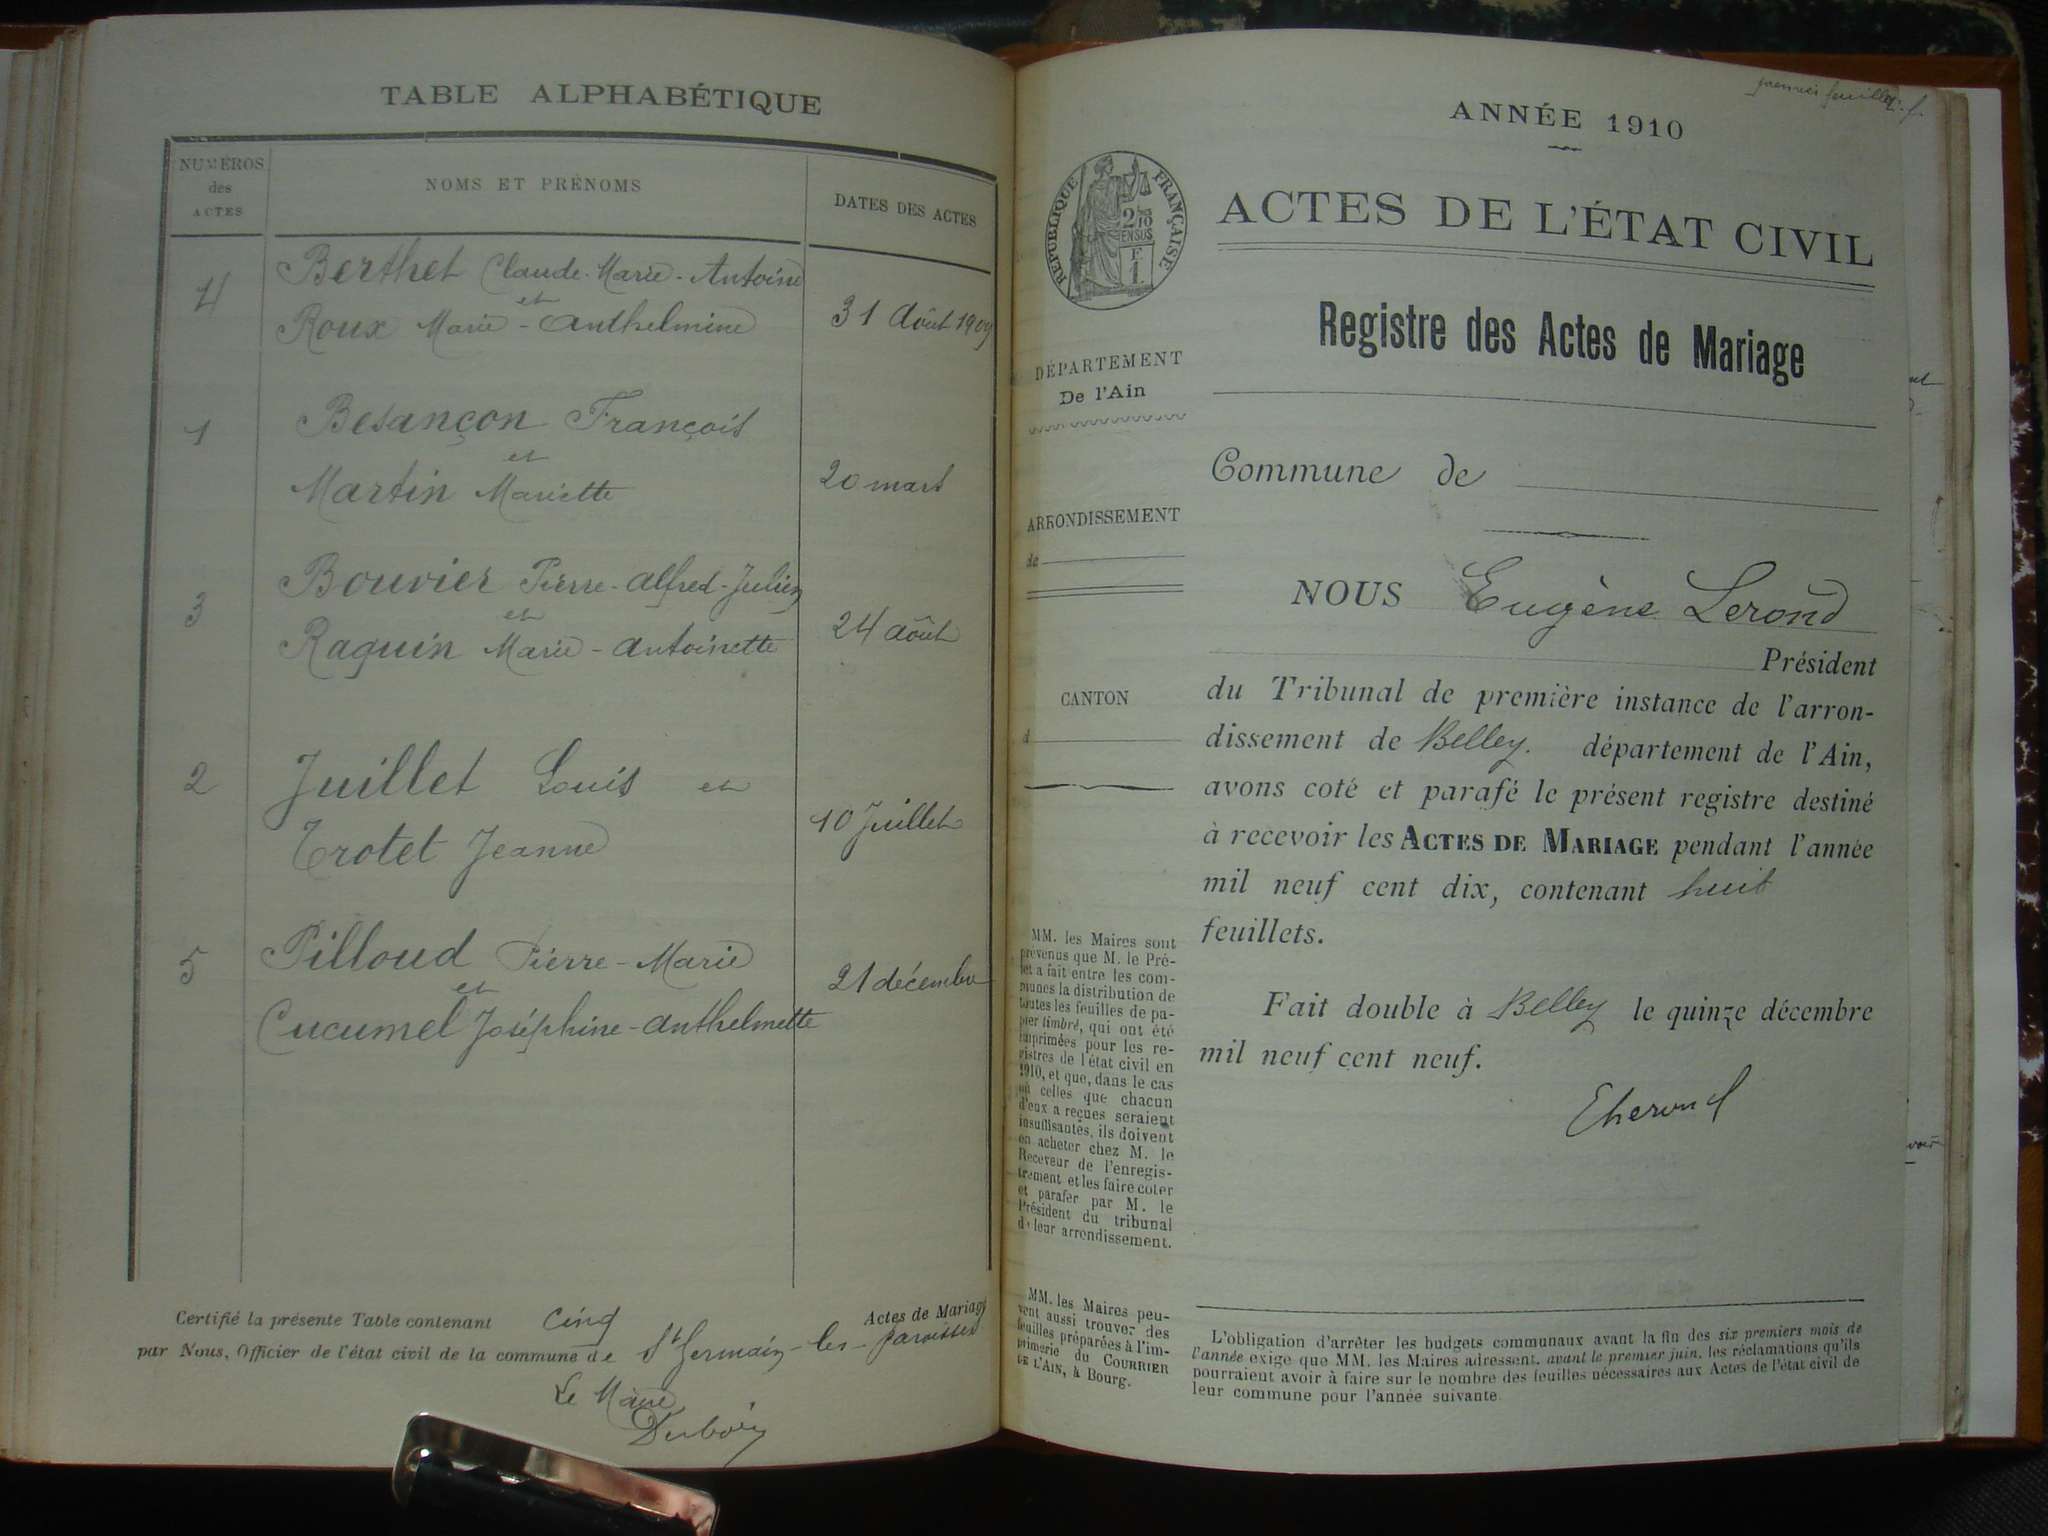 TABLE ALPHABÉTIQUE
NUMÉROS
des
ACTES
NOMS ET PRÉNOMS
DATES DES ACTES
4
Berthet Claude-Marie-Antoine
et
Roux Marie-Anthelmine
31 Août 1909
1
Besançon François
et
Martin Mariette
20 mars
3
Bouvier Pierre-Alfred-Julien
et
Raquin Marie-Antoinette
24 août
2
Juillet Louis et
Trotet Jeanne
10 Juillet
5
Pilloud Pierre-Marie
et
Cucumel Joséphine-Anthelmette
21 décembre
Certifié la présente Table contenant cinq Actes de Mariage
par Nous, Officier de l'état civil de la commune de St Germain-les-Paroisses
Le Maire
premier feuillet
ANNÉE 1910
RÉPUBLIQUE FRANÇAISE
2/10
EN SUS
F
1
ACTES DE L'ÉTAT CIVIL
Registre des Actes de Mariage
DÉPARTEMENT
De l'Ain
ARRONDISSEMENT
de
CANTON
d
Commune de
NOUS Eugène Lerond
Président
du Tribunal de première instance de l'arron-
dissement de Belley. département de l'Ain,
avons coté et parafé le présent registre destiné
à recevoir les ACTES DE MARIAGE pendant l'année
mil neuf cent dix, contenant huit
feuillets.
Fait double à Belley le quinze décembre
mil neuf cent neuf.
MM. les Maires sont
prévenus que M. le Pré-
fet a fait entre les com-
munes la distribution de
toutes les feuilles de pa-
pier timbré, qui ont été
imprimées pour les re-
gistres de l'état civil en
1910, et que, dans le cas
où celles que chacun
d'eux a reçues seraient
insuffisantes, ils doivent
en acheter chez M. le
Receveur de l'enregis-
trement et les faire coter
et parafer par M. le
Président du tribunal
de leur arrondissement.
MM. les Maires peu-
vent aussi trouver des
feuilles préparées à l'im-
primerie du COURRIER
DE L'AIN, à Bourg.
L'obligation d'arrêter les budgets communaux avant la fin des six premiers mois de
l'année exige que MM. les Maires adressent, avant le premier juin, les réclamations qu'ils
pourraient avoir à faire sur le nombre des feuilles nécessaires aux Actes de l'état civil de
leur commune pour l'année suivante.